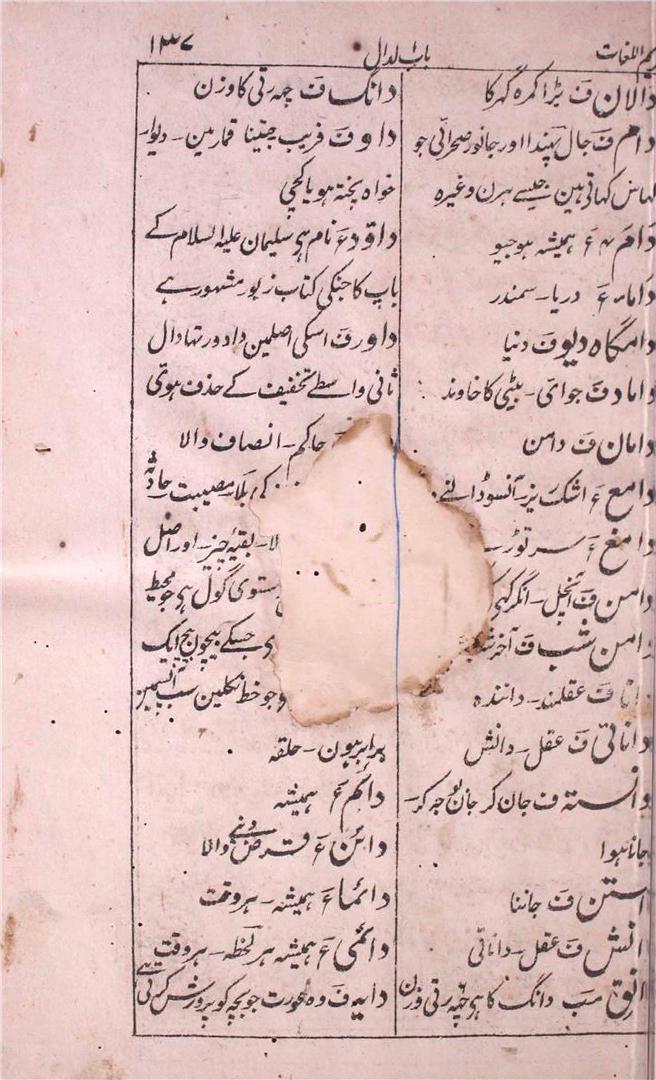 باب الدال ۱۳۷
دالان ف بڑا کمرہ گہر کا
دام ف جال پہندا اور جانور صحرائی جو
گہاس کہاتی ہین جیسے ہرن وغیرہ
دام ع ہمیشہ ہوجیو
داماء ع دریا۔ سمندر
دامگاہ دیو ف دنیا
داماد ف جوائی۔ بیٹی کا خاوند
دامان ف دامن
دامع ع اشک ریز۔ آنسو ڈالنے
دامغ ع سر توڑ
دامن ف آنچل۔
دامن شب ف آخر
دانا ف عقلمند۔ دانندہ
دانائی ف عقل۔ دانش
دانستہ ف جان کر جان بوجہ کر۔
جانا ہوا
دانستن ف جاننا
دانش ف عقل۔ دانائی
دانق مب دانگ کا ہی چہہ رتی وزن
دانگ ف چہہ رتی کا وزن
داو ف فریب جیتنا قمار مین۔ دیوار
خواہ پختہ ہو یا کچی
داود ع نام ہی سلیمان علیہ السلام کے
باپ کا جنکی کتاب زبور مشہور ہے
داور ف اسکی اصلمین دادور تہا دال
ثانی واسطے تخفیف کے حذف ہوئی
حاکم۔ انصاف والا
کے، بلا۔ مصیبت۔ حادثہ
لا۔ بقیہ چیز۔ اور اصل
ستوی گول ہی جو محیط
ی جسکے بیچون بیچ ایک
وجو خط نکلین سب آپسمین
برابر ہون۔ حلقہ
دائم ع ہمیشہ
دائن ع قرض دینے والا
دائما ع ہمیشہ۔ ہر وقت
دائمی ع ہمیشہ ہر لحظہ۔ ہر وقت
دایہ ف وہ عورت جو بچہ کو پرورش کرتی ہے